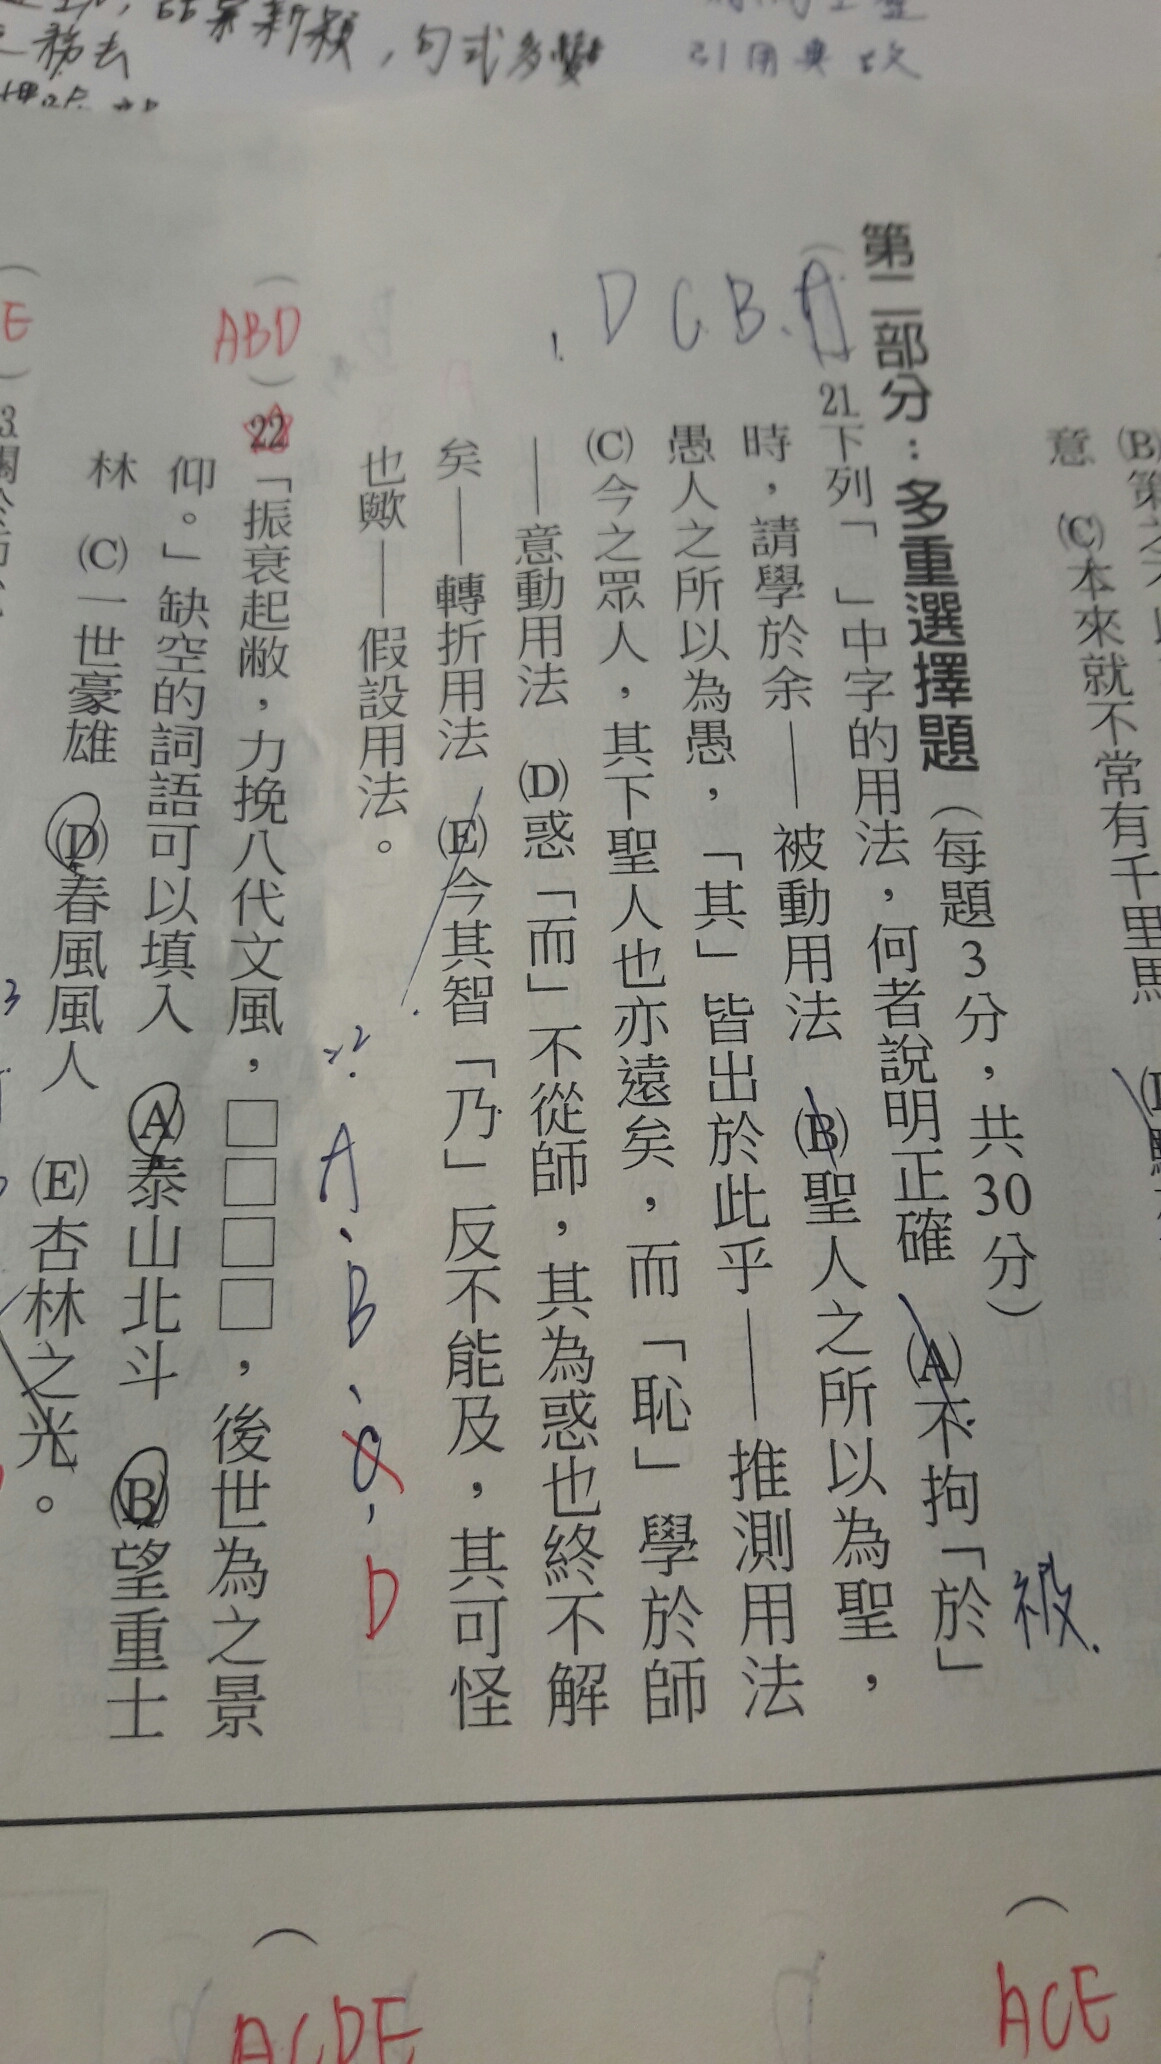 品眾新穎，句式多變
務去
引用典故
(B)第
意　(C)本來就不常有千里馬
第二部分：多重選擇題（每題3分，共30分）
（ABCD）21.下列「　」中字的用法，何者說明正確　(A)不拘「於」
時，請學於余——被動用法　(B)聖人之所以為聖，
愚人之所以為愚，「其」皆出於此乎——推測用法
(C)今之眾人，其下聖人也亦遠矣，而「恥」學於師
——意動用法　(D)惑「而」不從師，其為惑也終不解
矣——轉折用法　(E)今其智「乃」反不能及，其可怪
也歟——假設用法。
被
22. A、B、C、D
（ABD）22「振衰起敝，力挽八代文風，□□□□，後世為之景
仰。」缺空的詞語可以填入　(A)泰山北斗　(B)望重士
林　(C)一世豪雄　(D)春風風人　(E)杏林之光。
E）
（ACE
（ACDE